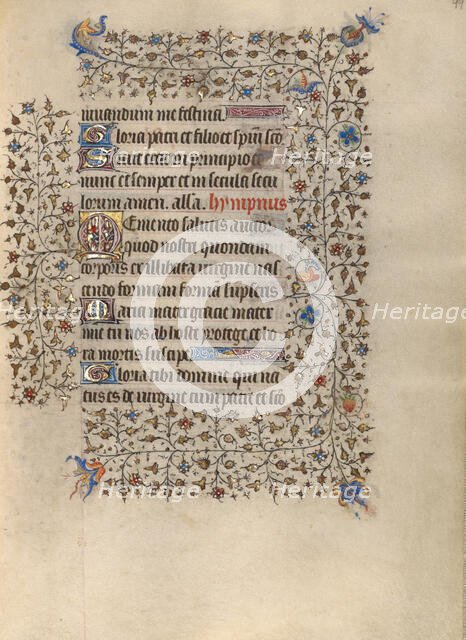 iuuandum me festina.
Gloria patri et filio et spiri sco
Sicut erat in principio et
nunc et semper et in secula secu
lorum amen. alla. hympnus
Memento salutis auctor
quod nostri quondam
corporis ex illibata uirgine nas
cendo formam sumpseris
Maria mater gracie mater
mie tu nos ab hoste protege et ho
ra mortis suscipe
Gloria tibi domine qui na
tus es de uirgine cum patre et sco
Heritage
Heritage
Heritage
Heritage
Heritage
Heritage
©